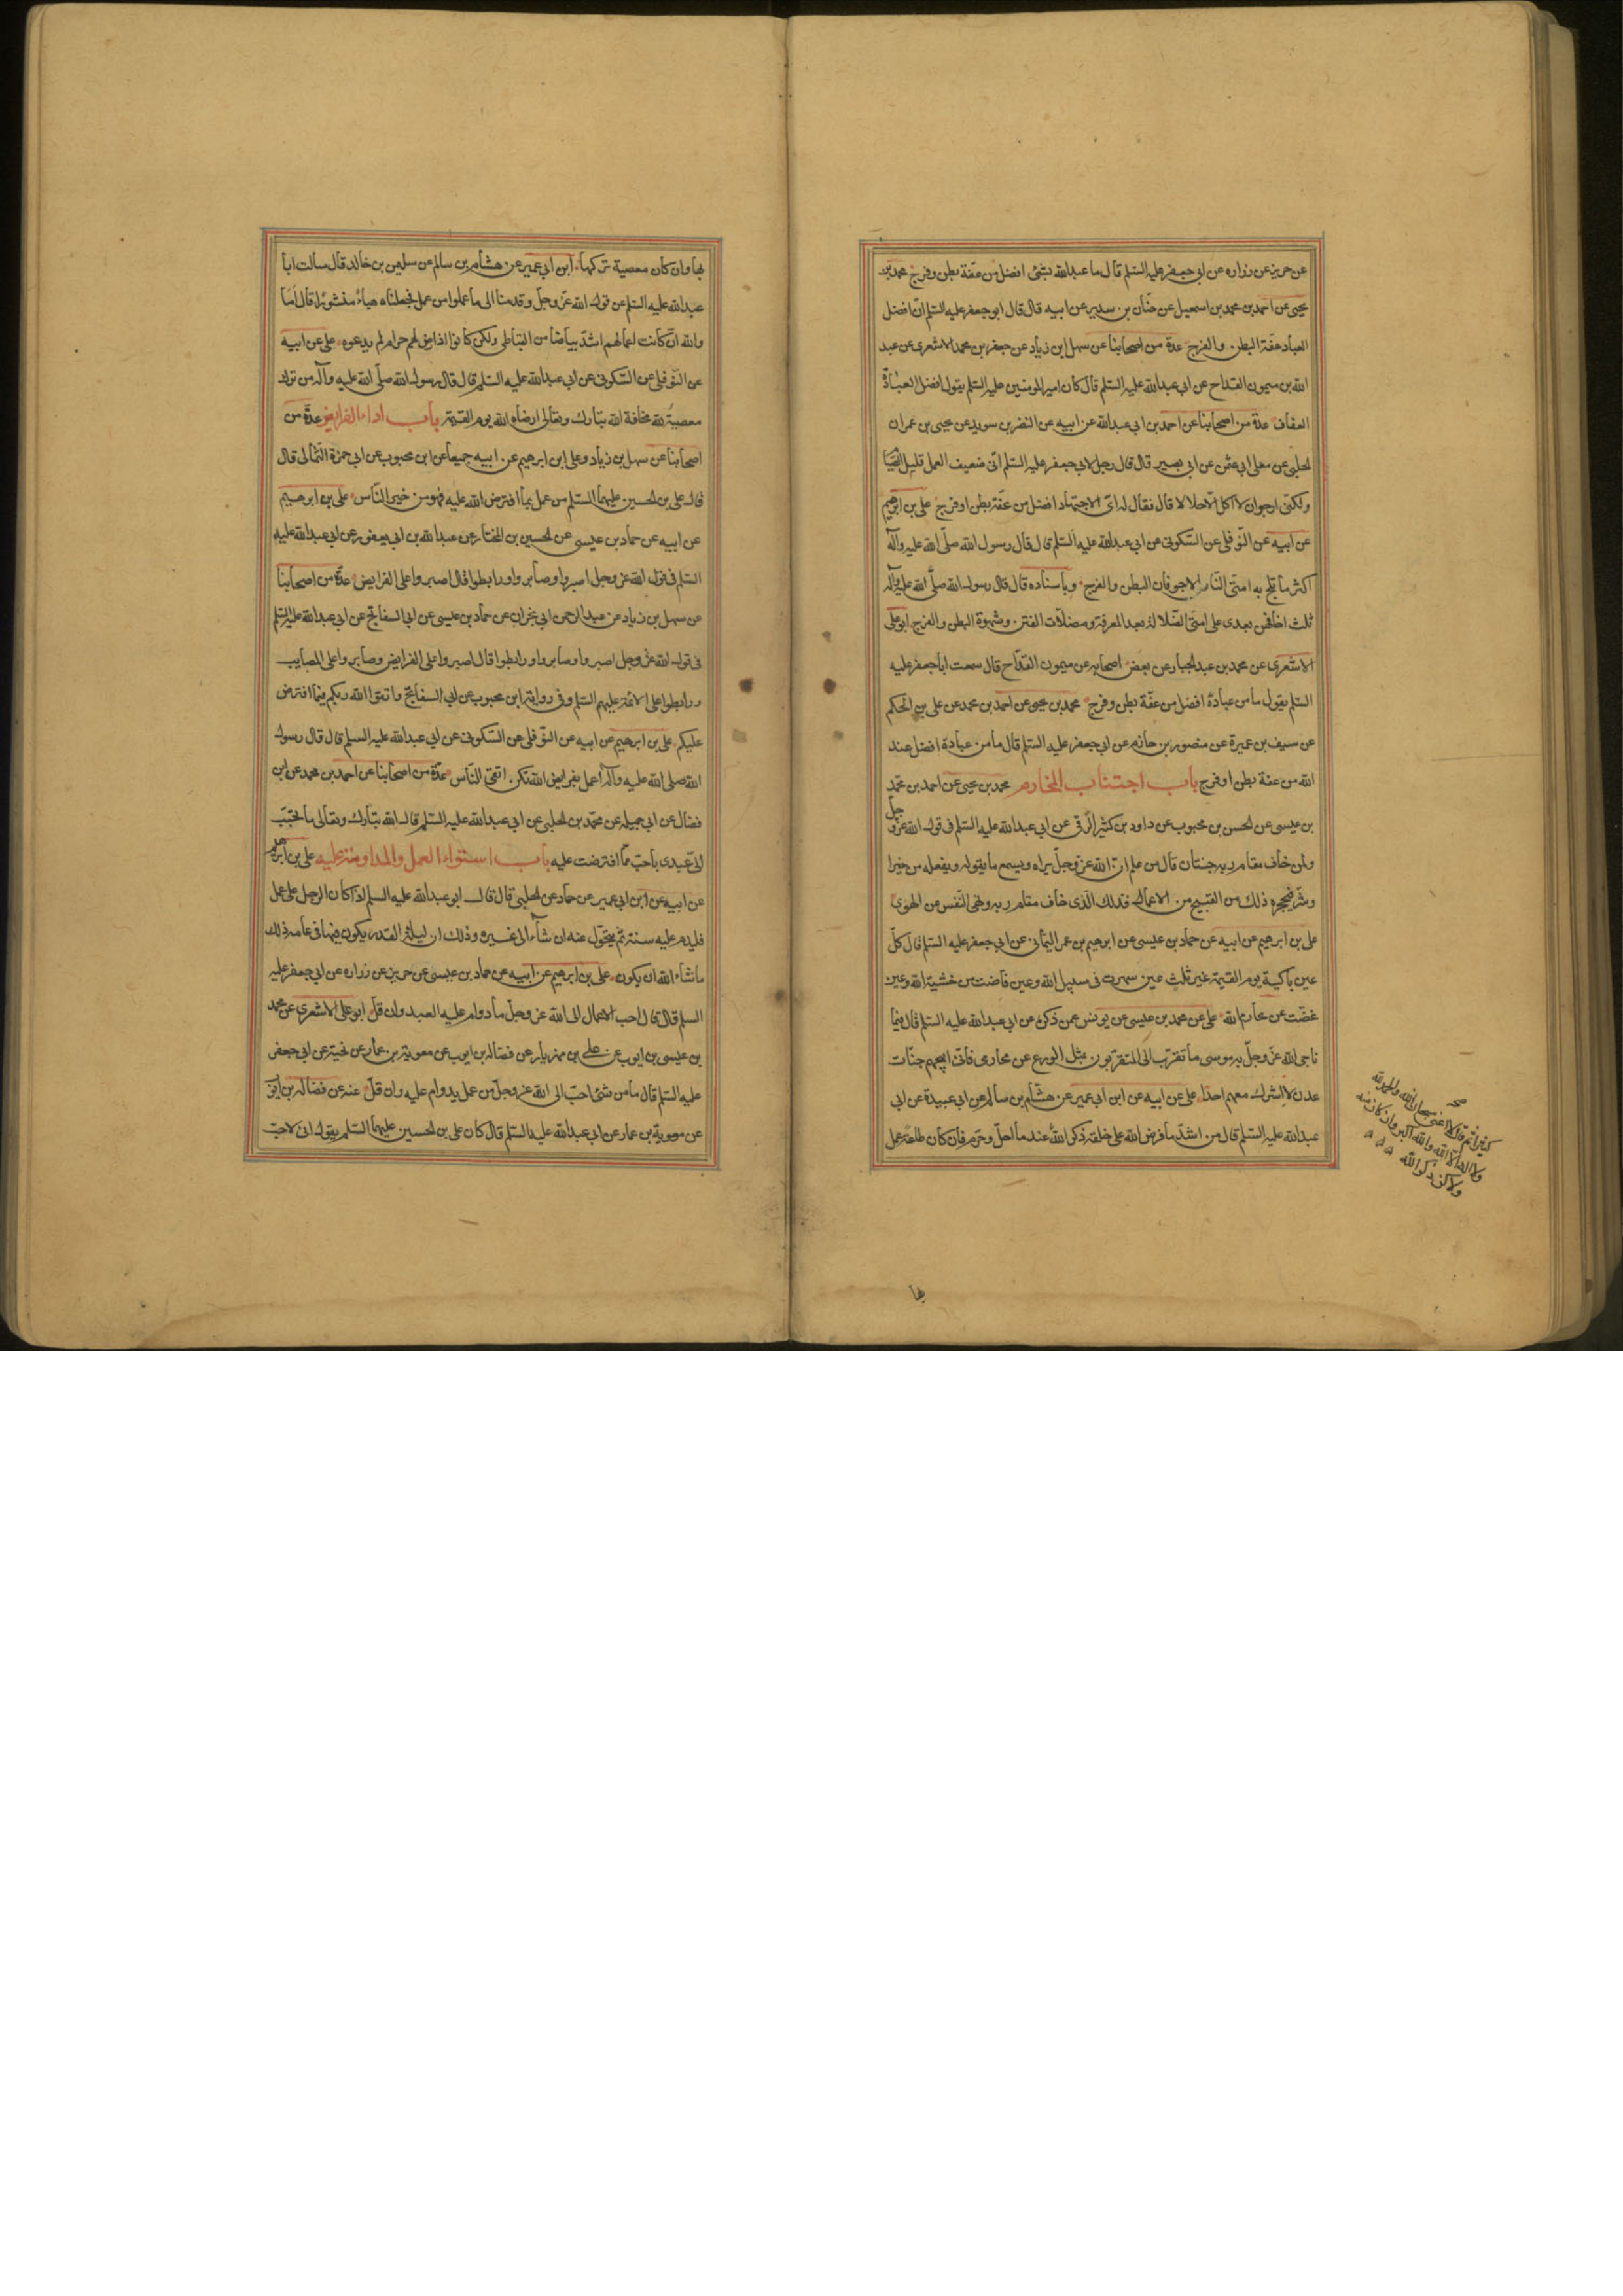 عن حريز عن زراره عن ابي جعفر عليه السلم قال ما عبد الله بشئ افضل من عفة بطن وفرج محمد بن
يحيى عن احمد بن محمد بن اسمعيل عن حنان بن سدير عن ابيه قال قال ابو جعفر عليه السلم انّ افضل
العباد عفة البطن والفرج عدة من اصحابنا عن سهل ابن زياد عن جعفر بن محمد الاشعرى عن عبد
الله بن ميمون القداح عن ابي عبد الله عليه السلم قال كان امير المومنين عليه السلم يقول افضل العبادة
العفاف عدة من اصحابنا عن احمد بن ابي عبد الله عن ابيه عن النضر بن سويد عن يحيى بن عمران
الحلبي عن معلى ابي عثمن عن ابي بصير قال قال رجل لابي جعفر عليه السلم انّى ضعيف العمل قليل الصّيا
ولكنّى ارجو ان لا آكل الّا حلالا قال فقال له اىّ الاجتهاد افضل من عفّة بطن او فرج على بن ابرهيم
عن ابيه عن النّوفلى عن السّكونى عن ابي عبد الله عليه السلم قال قال رسول الله صلّى الله عليه وآله
اكثر ما تلج به امتى النّار الاجوفان البطن والفرج وباسناده قال قال رسول الله صلّى الله عليه وآله
ثلث اخافهن بعدى على امتى الضّلالة بعد المعرفة ومضلّات الفتن وشهوة البطن والفرج ابو على
الاشعرى عن محمد بن عبد الجبار عن بعض اصحابه عن ميمون القدّاح قال سمعت ابا جعفر عليه
السلم يقول ما من عبادة افضل من عفّة بطن وفرج محمد بن يحيى عن احمد بن محمد عن على بن الحكم
عن سيف بن عميرة عن منصور بن حازم عن ابي جعفر عليه السلم قال ما من عبادة افضل عند
الله من عفة بطن او فرج باب اجتناب المحارم محمد بن يحيى عن احمد بن محمّد
بن عيسى عن الحسن بن محبوب عن داود بن كثير الرّقى عن ابي عبد الله عليه السلم فى قول الله عزّ وجلّ
ولمن خاف مقام ربه جنتان قال من علم انّ الله عزّ وجلّ يراه ويسمع ما يقوله ويفعله من خير او
وشرّ فيحجزه ذلك من القبيح من الاعمال فذلك الّذى خاف مقام ربه ونهى النّفس من الهوى
على بن ابرهيم عن ابيه عن حماد بن عيسى عن ابرهيم بن عمر اليمانى عن ابي جعفر عليه السلم قال كلّ
عين باكية يوم القيمة غير ثلث عين سهرت فى سبيل الله وعين فاضت من خشية الله وعين
غضّت عن محارم الله على عن محمد بن عيسى عن يونس عمن ذكره عن ابي عبد الله عليه السلم قال فيما
ناجى الله عزّ وجلّ به موسى ما تقرّب الىّ المتقرّبون بمثل الورع عن محارمى فانّى ابيحهم جنّات
عدن لا اشرك معهم احدا على عن ابيه عن ابن ابي عمير عن هشام بن سالم عن ابي عبيدة عن ابي
عبد الله عليه السلم قال من اشدّ ما فرض الله على خلقه ذكر الله عند ما احلّ وحرّم فان كان طاعة عمل
صح
كثيرا ثم قال لا اعنى سبحان الله والحمد لله
ولا اله الا الله والله اكبر وان كان منه
ولكن ذكر الله
بها
بها وان كان معصية تركها ابن ابي عمير عن هشام بن سالم عن سليمن بن خالد قال سالت ابا
عبد الله عليه السلم عن قول الله عزّ وجلّ وقدمنا الى ما عملوا من عمل فجعلناه هباءً منثورًا قال اما
والله ان كانت اعمالهم اشدّ بياضًا من القباطى ولكن كانوا اذا عرض لهم حرام لم يدعوه على عن ابيه
عن النّوفلى عن السّكونى عن ابي عبد الله عليه السلم قال قال رسول الله صلّى الله عليه وآله من ترك
معصية لله مخافة الله تبارك وتعالى ارضاه الله يوم القيمة باب اداء الفرايض عدّة من
اصحابنا عن سهل بن زياد وعلى ابن ابرهيم عن ابيه جميعا عن ابن محبوب عن ابي حمزة الثّمالى قال
قال على بن الحسين عليهما السلم من عمل بما افترض الله عليه فهو من خير النّاس على بن ابرهيم
عن ابيه عن حماد بن عيسى عن الحسين بن المختار عن عبد الله بن ابي يعفور عن ابي عبد الله عليه
السلم فى قول الله عزّ وجل اصبروا وصابروا ورابطوا قال اصبروا على الفرايض عدّة من اصحابنا
عن سهل بن زياد عن عبد الرحمن ابي نجران عن حماد بن عيسى عن ابي السفاتج عن ابي عبد الله عليه السلم
فى قول الله عزّ وجل اصبروا وصابروا ورابطوا قال اصبروا على الفرايض وصابروا على المصايب
ورابطوا على الائمة عليهم السلم وفى رواية ابن محبوب عن ابي السفاتج واتقوا الله ربكم فيما افترض
عليكم على بن ابرهيم عن ابيه عن النّوفلى عن السّكونى عن ابي عبد الله عليه السلم قال قال رسول
الله صلى الله عليه وآله اعمل بفرايض الله تكن اتقى النّاس عدّة من اصحابنا عن احمد بن محمد عن ابن
فضال عن ابي جميله عن محمّد بن الحلبى عن ابي عبد الله عليه السلم قال الله تبارك وتعالى ما تحبّب
الىّ عبدى باحبّ ممّا افترضت عليه باب استواء العمل والمداومة عليه على بن ابرهيم
عن ابيه عن ابن ابي عمير عن حماد عن الحلبى قال قال ابو عبد الله عليه السلم اذا كان الرجل على عمل
فليدم عليه سنة ثمّ يتحوّل عنه ان شاء الى غيره وذلك ان ليلة القدر يكون فيها فى عامه ذلك
ما شاء الله ان يكون على بن ابرهيم عن ابيه عن حماد بن عيسى عن حريز عن زراره عن ابي جعفر عليه
السلم قال قال احب الاعمال الى الله عز وجلّ ما دوام عليه العبد وان قلّ ابو على الاشعرى عن محمد
بن عيسى بن ايوب عن على بن مهزيار عن فضاله بن ايوب عن معوية بن عمار عن نجية عن ابي جعفر
عليه السلم قال ما من شئ احبّ الى الله عز وجلّ من عمل يدوام عليه وان قلّ عنه عن فضاله بن ايّوب
عن معوية بن عمار عن ابي عبد الله عليه السلم قال كان على بن الحسين عليهما السلم يقول انى لاحبّ